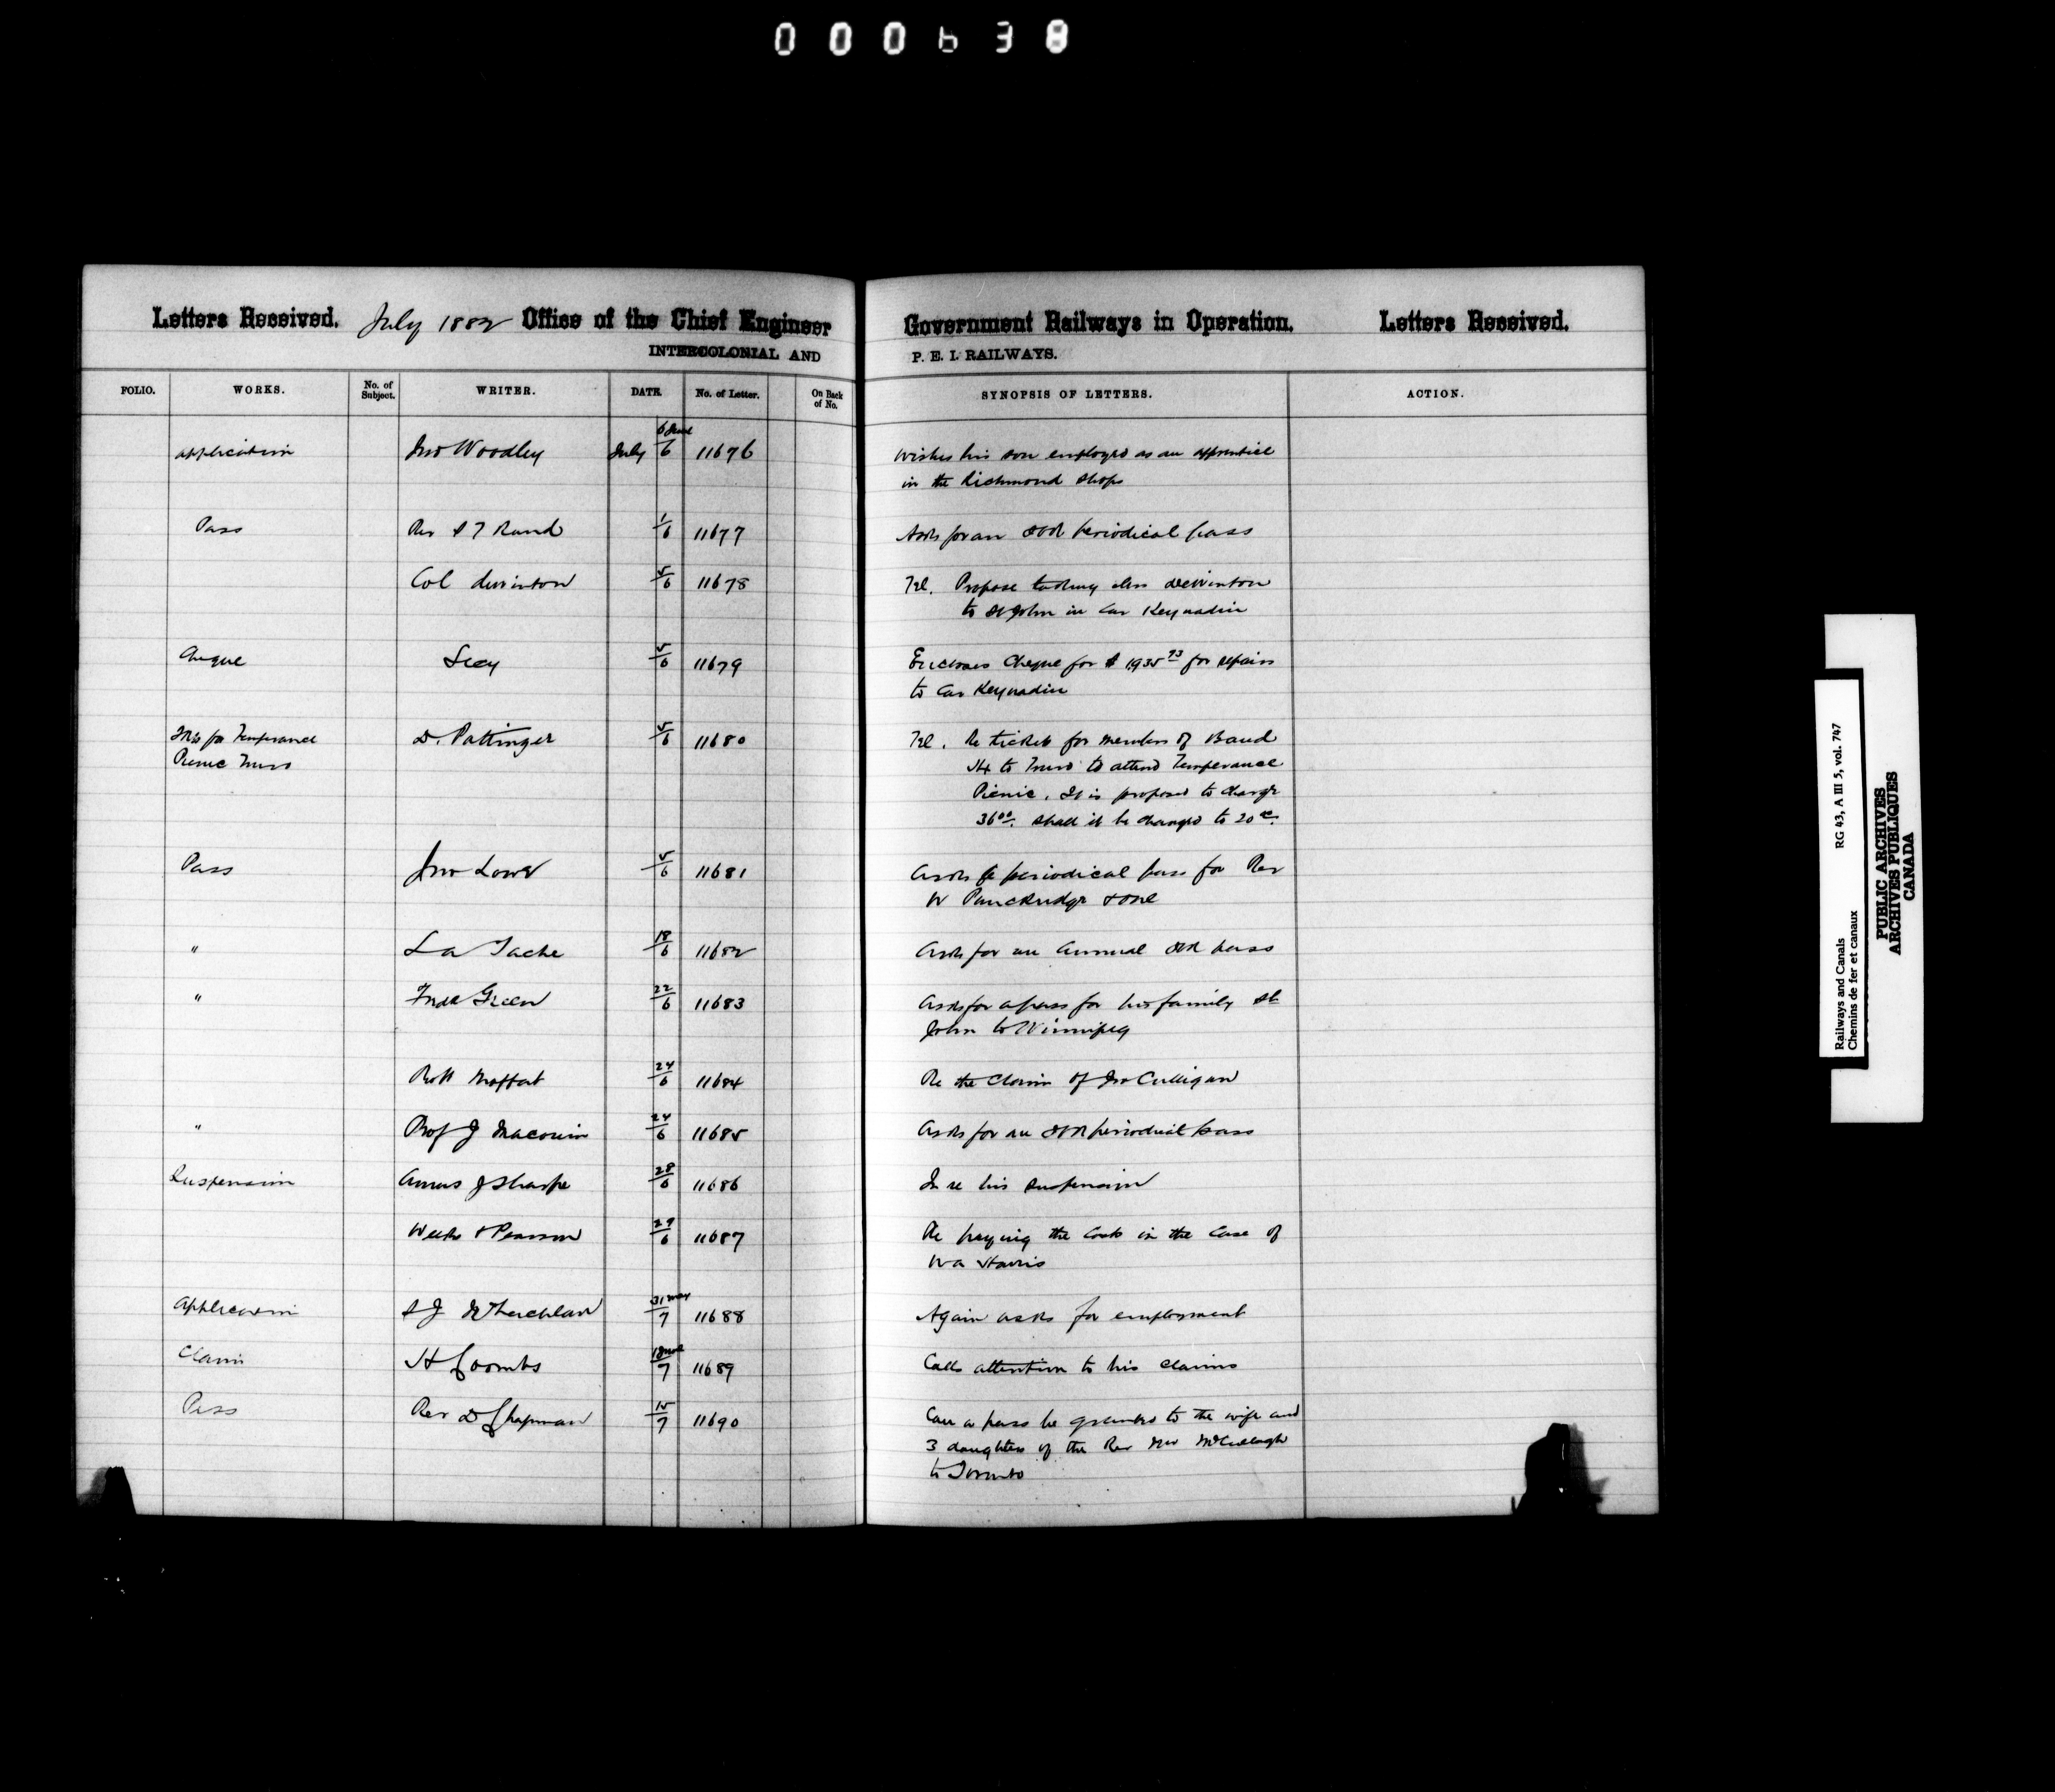 000638
Letters Received. July 1882 Office of the Chief Engineer Government Railways in Operation. Letters Received.
INTERCOLONIAL AND P. E. I. RAILWAYS.
FOLIO. WORKS. No. of Subject. WRITER. DATE. No. of Letter. On Back of No. SYNOPSIS OF LETTERS. ACTION.
application Jno Woodley July 6 June/6 11676 Wishes his son employed as an apprentice
in the Richmond Shops
Pass Rev S T Rand 1/6 11677 Asks for an ICR periodical pass
Col 5/6 11678 Tel. Propose taking
to St John in Car Keewadin
Cheque Secy 5/6 11679 Encloses Cheque for $1935 73 for repairs
to Car Keewadin
for Temperance D. Pottinger 5/6 11680 Tel. Re tickets for members of Band
Picnic Truro Hx to Truro to attend Temperance
Picnic. It is proposed to charge
36 00. Shall it be changed to 20
Pass Jno Lowe 5/6 11681 Asks for periodical pass for Rev
W Panckridge & one
" La Tache 18/6 11682 Asks for an annual ICR pass
" Fredk Green 22/6 11683 Asks for a pass for his family St
John to Winnipeg
Robt Moffat 24/6 11684 Re the Claim of Jno Culligan
" Prof J Macoun 24/6 11685 Asks for an ICR periodical pass
Suspension Amos J Sharpe 28/6 11686 In re his suspension
Weeks & Pearson 29/6 11687 Re paying the Costs in the Case of
Wm Harris
Application S J 31 May/7 11688 Again asks for employment
Claim H Coombs 11689 Calls attention to his claims
Pass Rev D Chapman 15/7 11690 Can a pass be granted to the wife and
3 daughters of the Rev Mr McCullagh
to Toronto
Railways and Canals RG 43, A III 5, vol. 747
Chemins de fer et canaux
PUBLIC ARCHIVES
ARCHIVES PUBLIQUES
CANADA